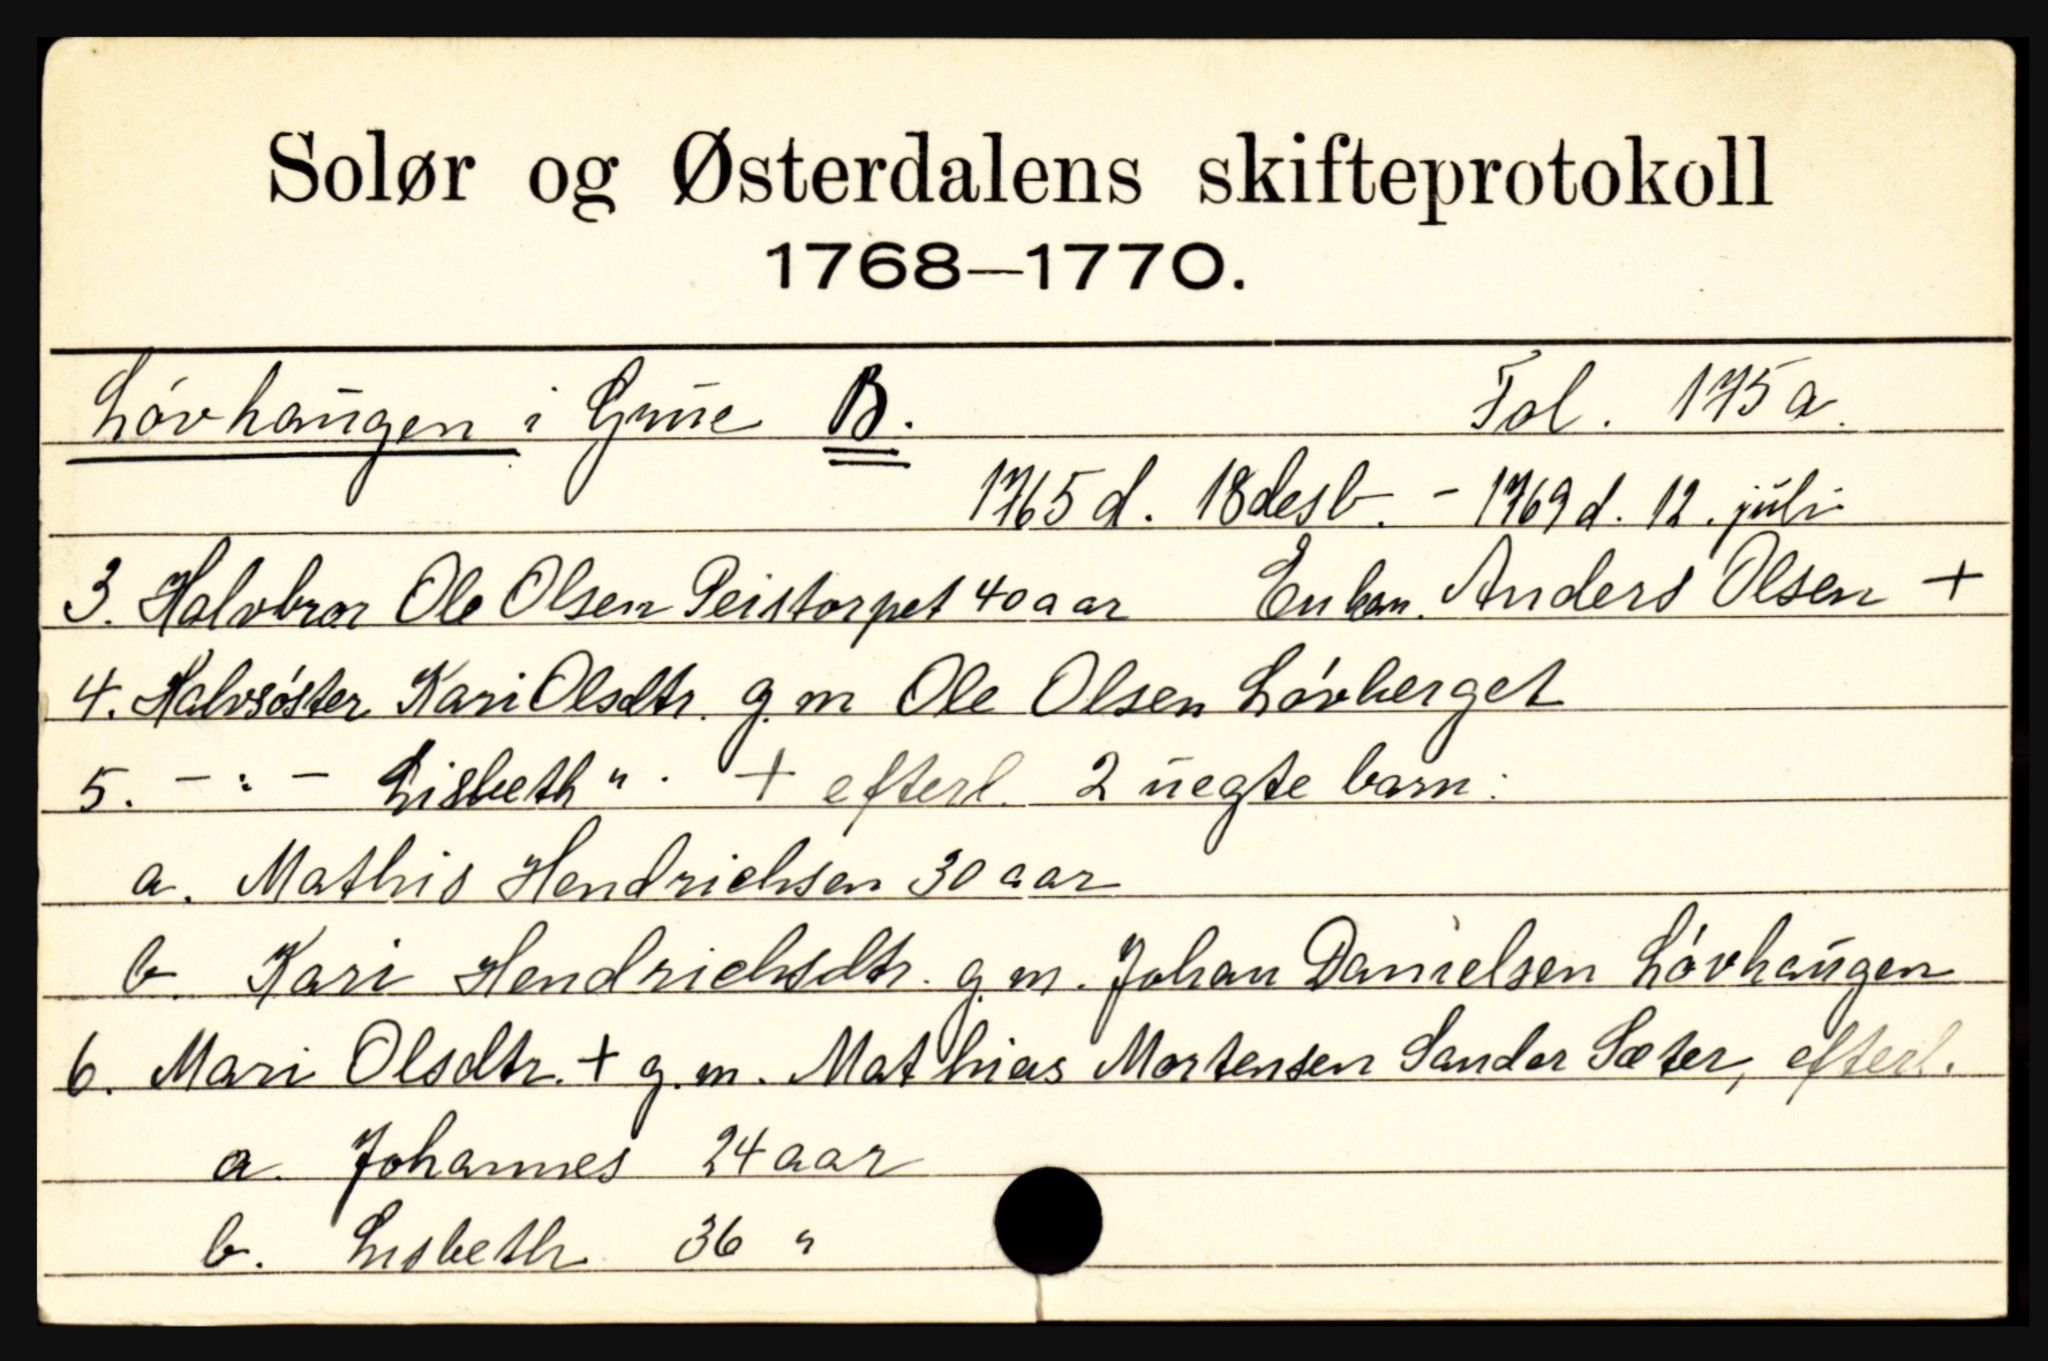 Solør og Østerdalens skifteprotokoll
1768—1770.
Lóvhaŭgen i Grŭe B. Fol. 175a.
1765 d. 18 desb. - 1769 d. 12. jŭli
3. Halvbror Ole Olsen Peistorpet 40 aar Enkem. Anders Olsen +
4. Halvsóster Kari Olsdtr. g.m Ole Olsen Lóvberget
5. - : - Lisbeth " . + efterl. 2 ŭegte barn:
a. Mathis Hendrichsen 30 aar
b. Kari Hendrichsdtr. g.m. Johan Danielsen Lóvhaŭgen
6. Mari Olsdtr. + g.m. Mathias Mortensen Sander Sæter, efterl.
a. Johannes 24 aar
b. Lisbeth 36 "